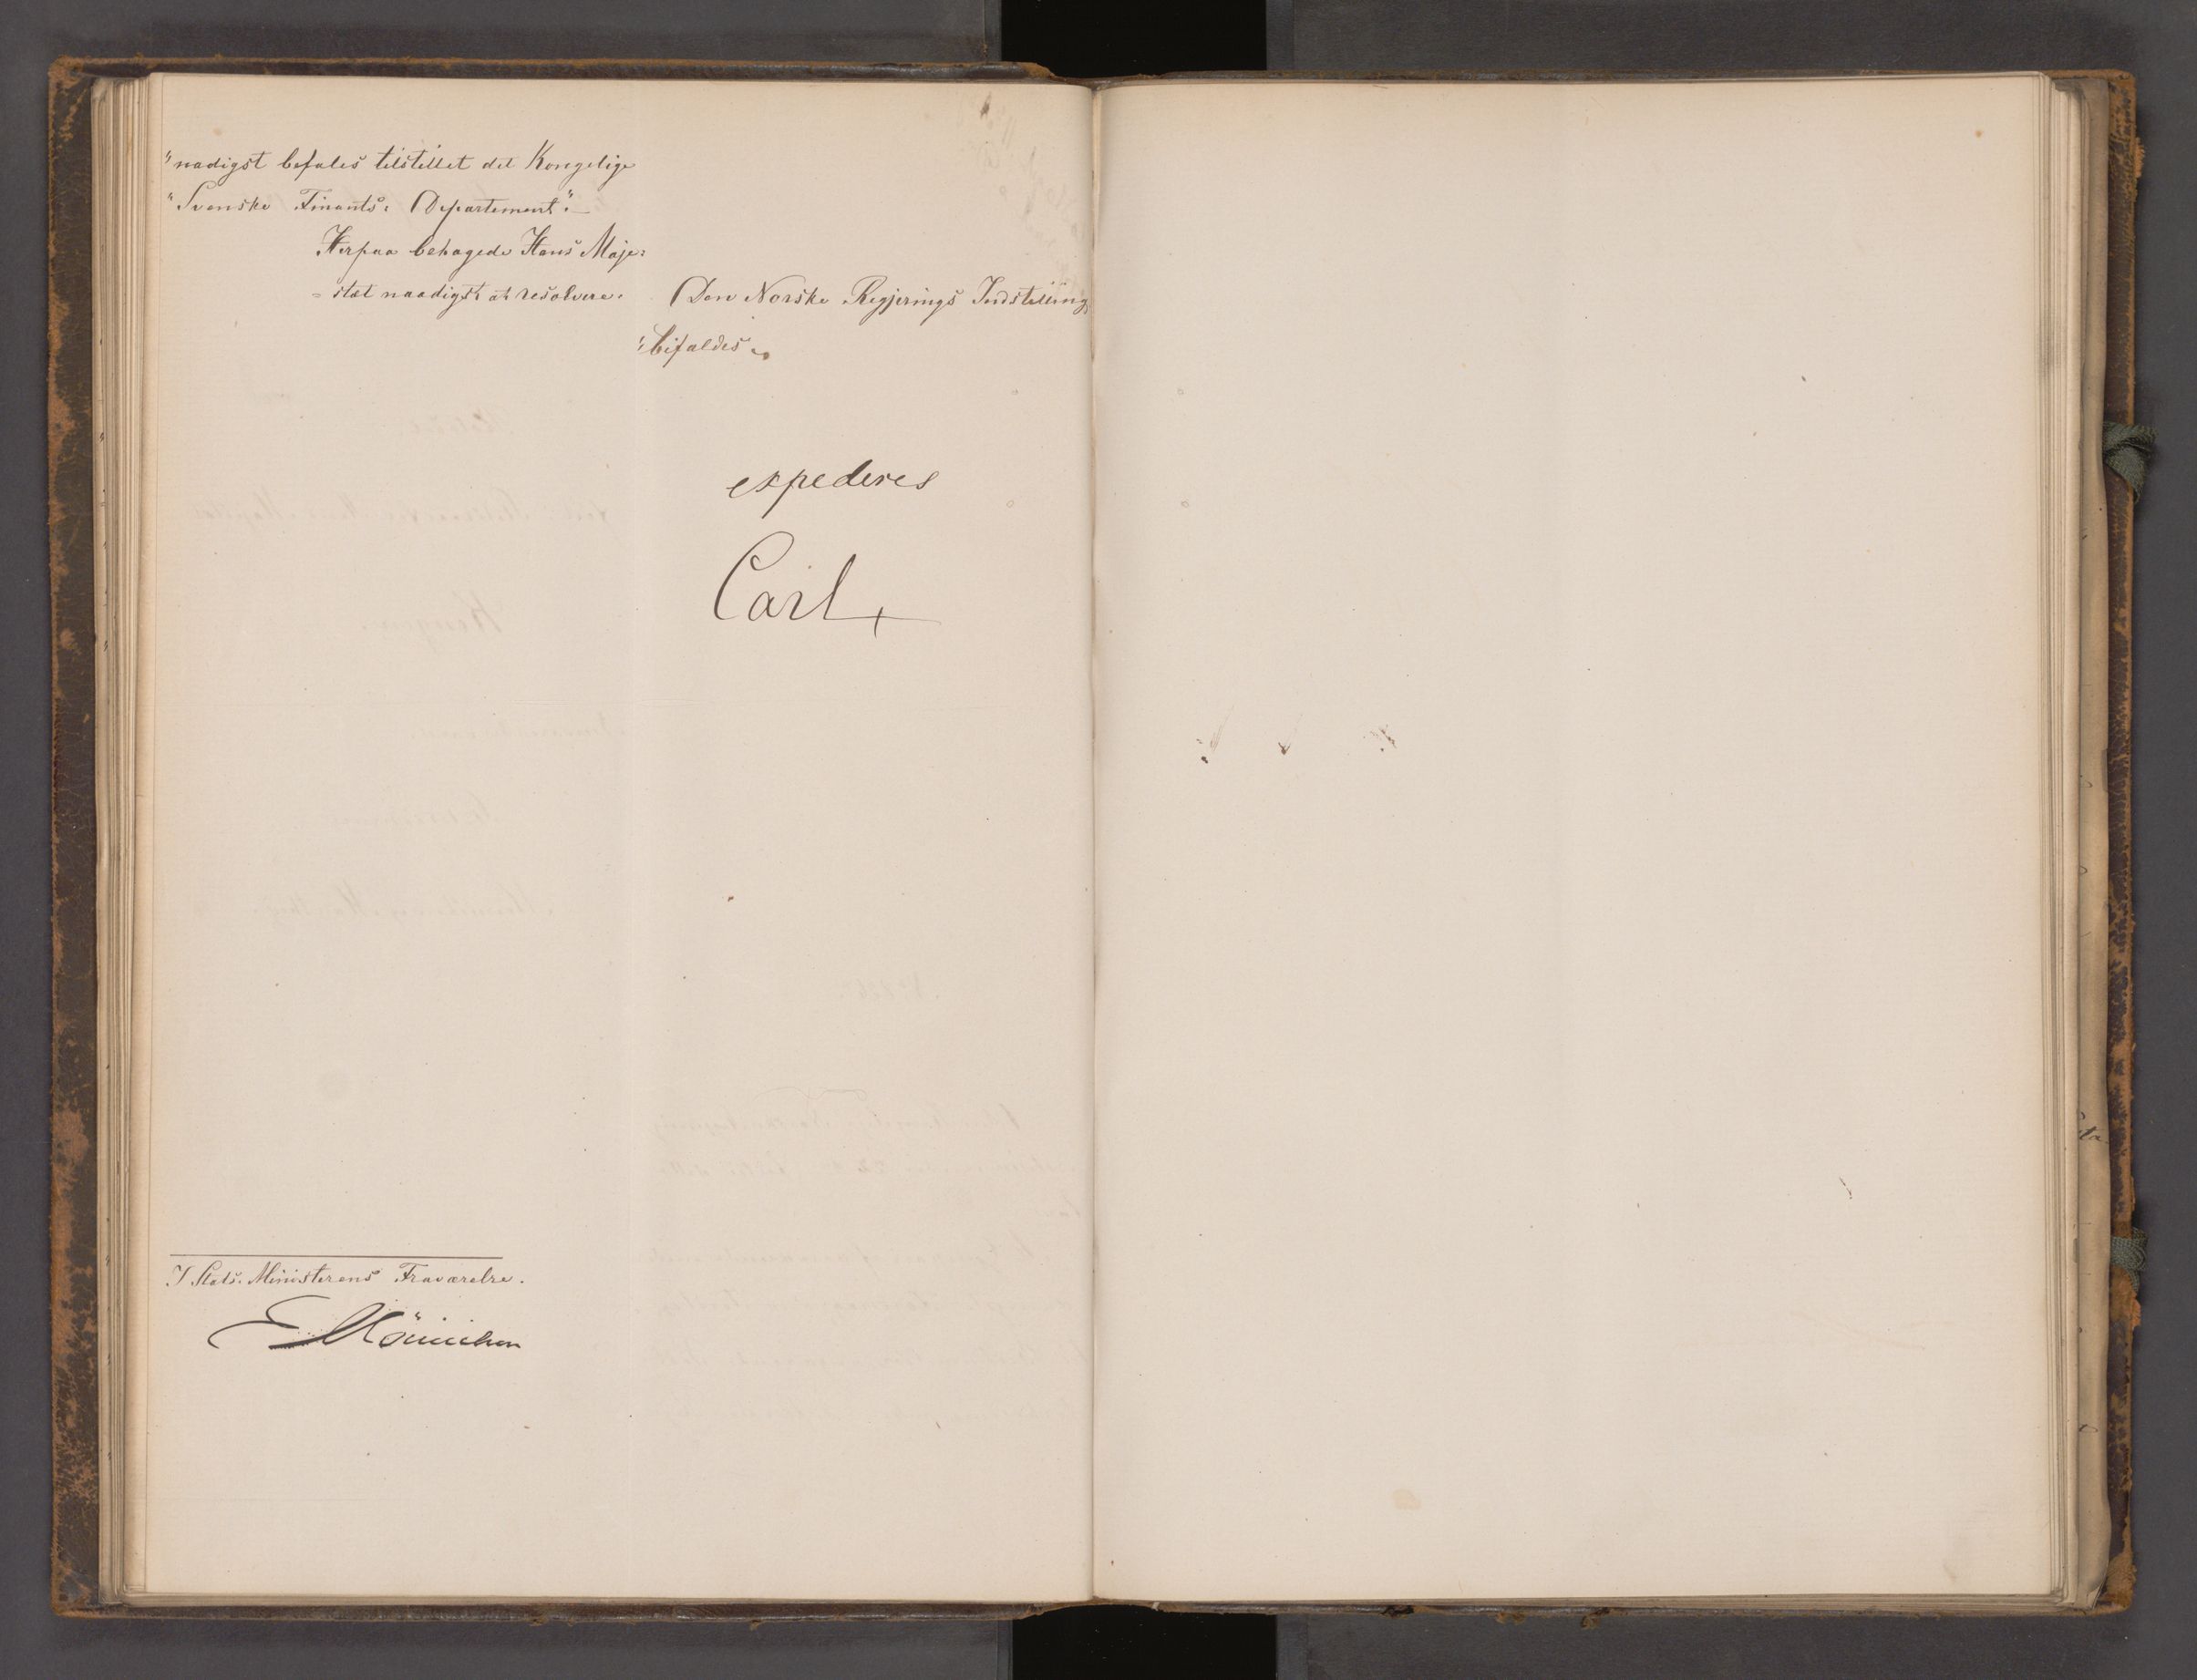 "naadigst befales tilstillet det Kongelige
"Svenske Finants: Departement".
Herpaa behagede Hans Maje:
= stæt naadigst at resolvere.
Den Norske Regjerings Indstilling
"bifaldes".
expederes
Carl
I Stats: Ministerens Fraværelse.